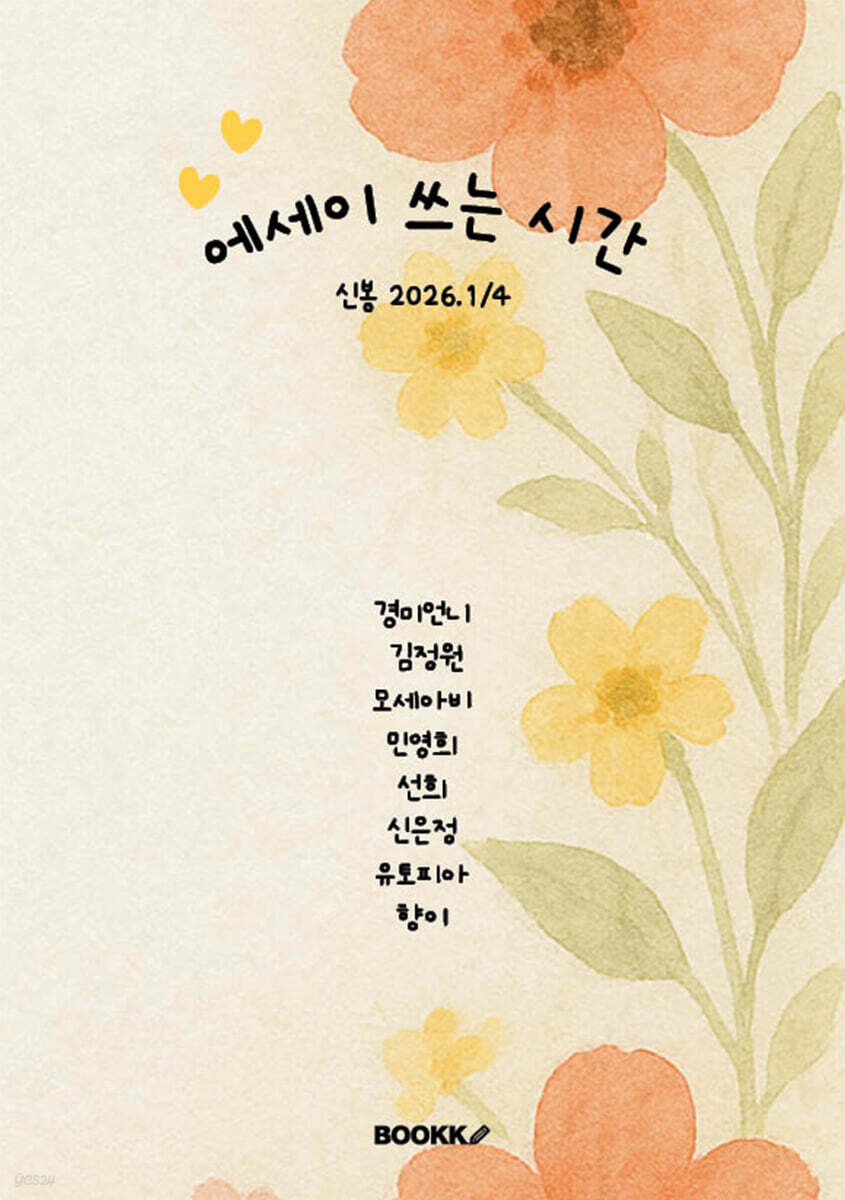 에세이 쓰는 시간
신봉 2026.1/4
경미언니
김정원
모세아비
민영희
선희
신은정
유토피아
향이
BOOKK
yes24